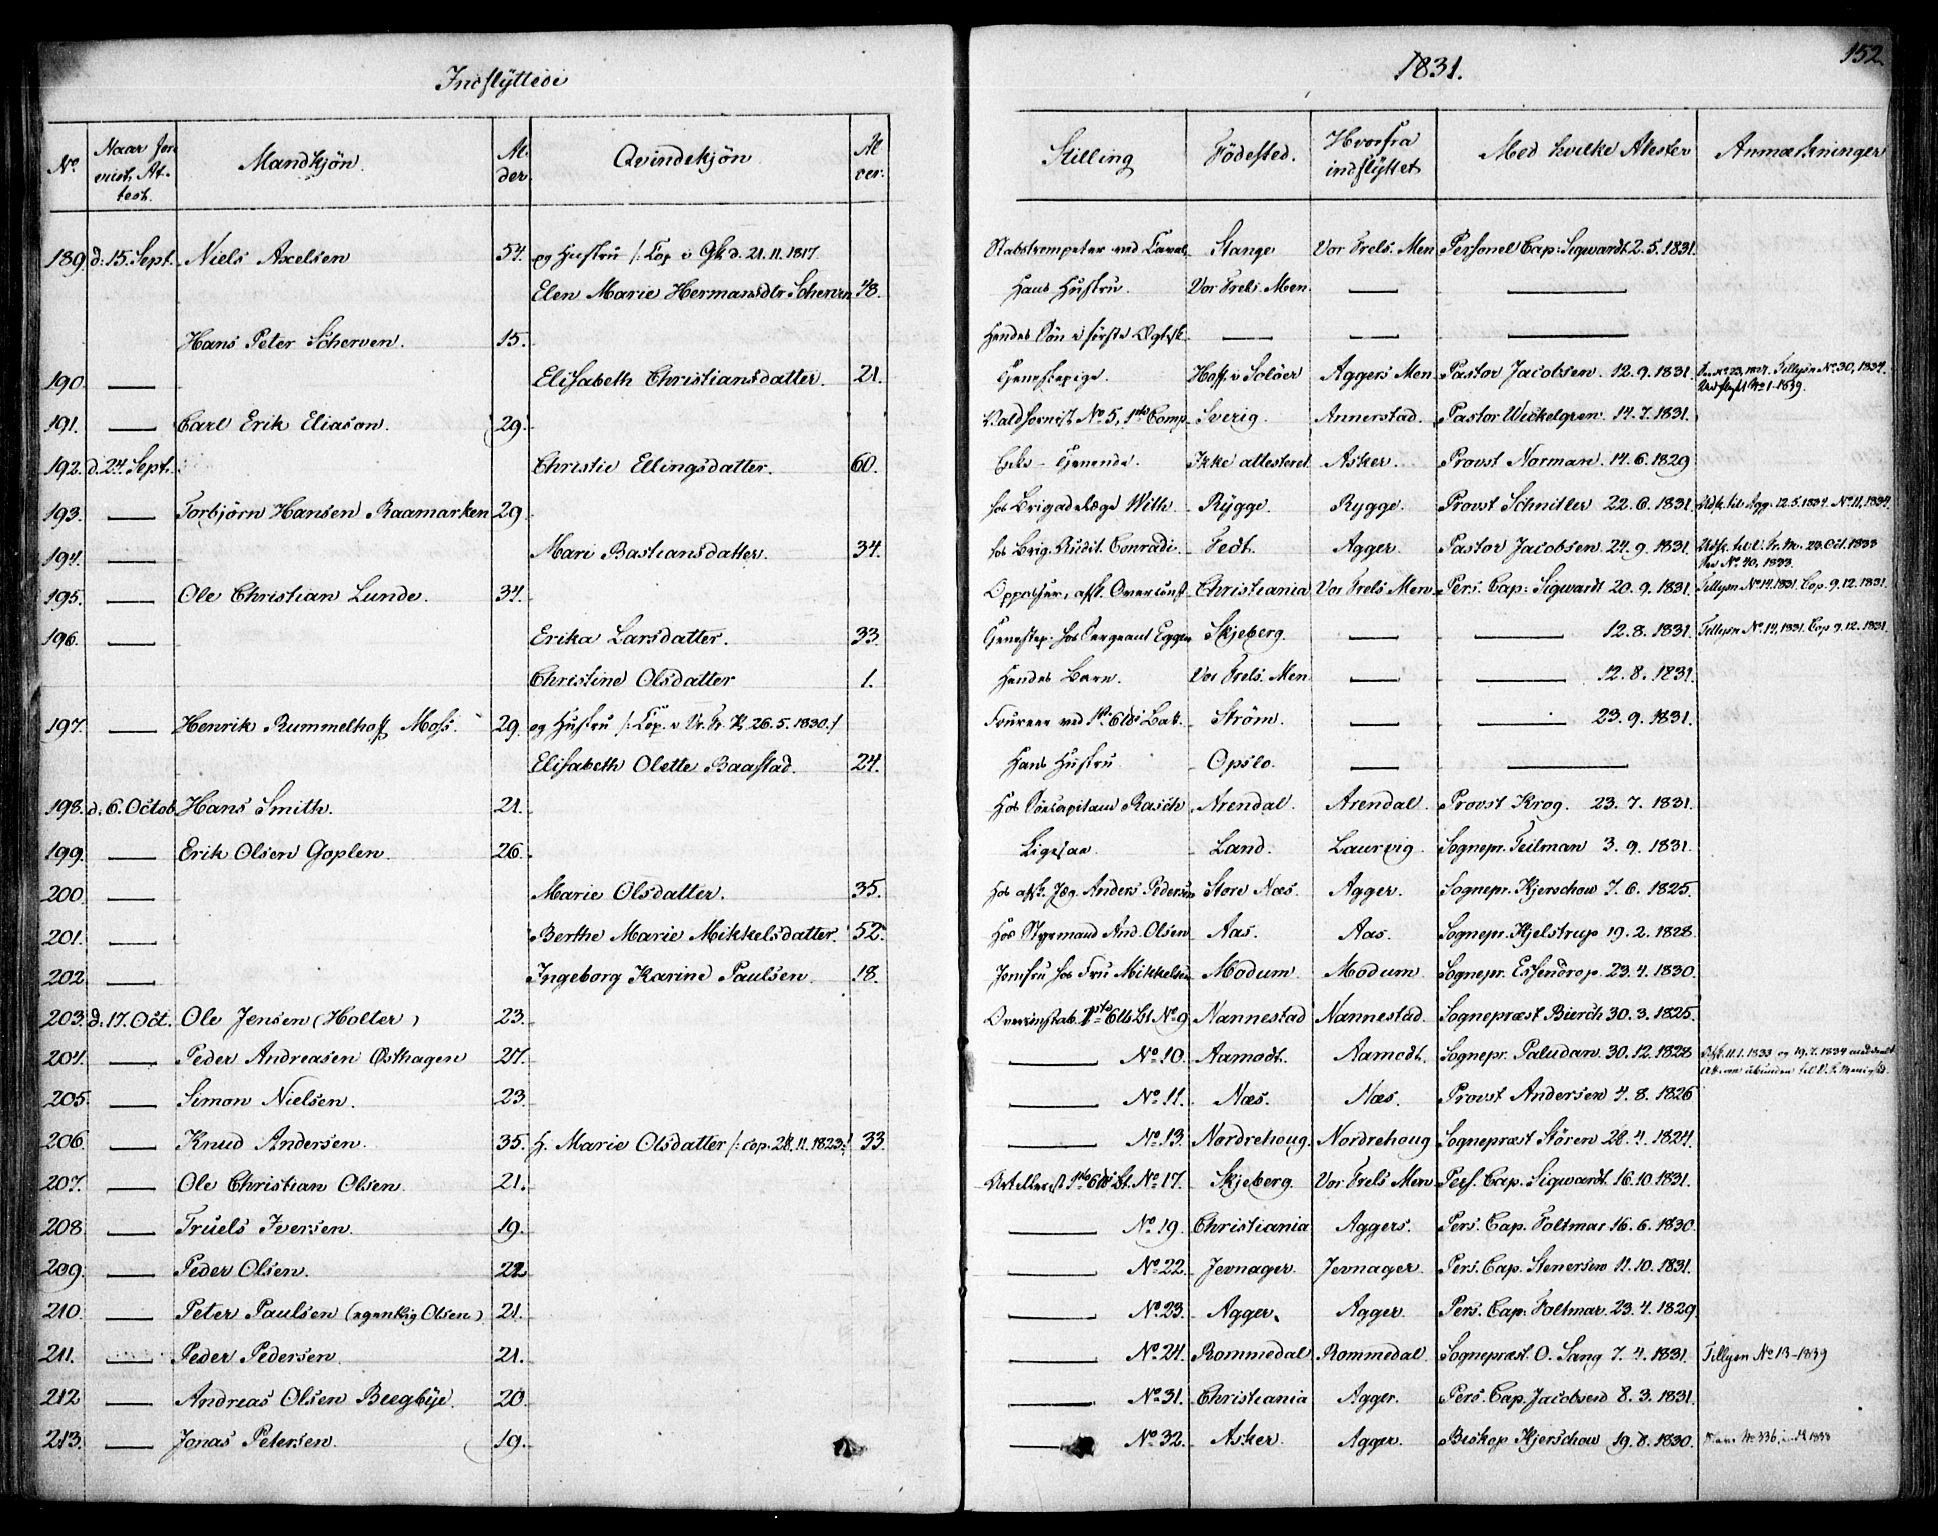 Indflyttede
1831.
152.
No | Naar fore vist, At- test. | Mandkjön. | Al- der | Qvindekjön. | Al der. | Stilling | Födested. | Hvorfra indflyttet | Med hvilke Atester | Anmærkninger
189. d. 15. Sept. Niels Axelsen 54. og Hustru /: Cop. v. Gk. d. 21.11.1817. Stabstrompeter ved Caval. Stange Vor Frels. Men Personel Cap: Sigwardt 2.5.1831.
Elen Marie Hermansdtr Scherven 48. Hans Hustru. Vor Frels. Men. — —
Hans Peter Scherven. 15. Hendes Sön i förste Ægtsk. — — —
190. — Elisabeth Christiansdatter. 21. Tjenestepige. Hoff. v. Solöer Aggers Men Pastor Jacobsen. 12.9.1831. Tillysn No 30, 1834. Udflytt No 1-1839.
191. — Carl Erik Eliason. 29. Valdhornist No 5, 1ste Comp. Sverig. Annerstad. Pastor Wickelgren. 14.7.1831.
192. d. 24. Sept. Christie Ellingsdatter. 60. Enke - Tjenende. Ikke attesteret Asker. Provst Norman. 14.6.1829
193. — Torbjørn Hansen Raamarken 29. hos Brigadelæge With Rygge. Rygge. Provst Schnitler 22.6.1831. Udsk. til Agg. 12.5.1834. No 11, 1834.
194. — Mari Bastiansdatter. 34. hos Brig. Audit. Conradi. Fedt. Agger. Pastor Jacobsen. 24.9.1831. Udsk. til V. Fr. M. 23. Oct. 1833 No 40, 1833.
195. — Ole Christian Lunde. 34. Oppasser, afsk. Overconst. Christiania Vor Frels Men. Pers. Cap: Sigwardt 20.9.1831. Tillysn No 14.1831. Cop. 9.12.1831.
196. — Erika Larsdatter. 33. Tjenestep. hos Sergeant Eggen Skjeberg. — — 12.8.1831. Tillysn No 14, 1831. Cop 9.12.1831.
Christine Olsdatter 1. Hendes Barn. Vor Frels. Men — — 12.8.1831.
197. — Henrik Rummelhoff Moss. 29. og Hustru /: Cop. v. Vr. Fr. K. 26.5.1830. / Foureer ved Batt. Ström. — — 23.9.1831.
Elisabeth Olette Baastad. 24. Hans Hustru. Opslo. — —
198. d. 6. Octob Hans Smith. 21. Hos Söecapitain Rasch Arendal. Arendal. Provst Krog. 23.7.1831.
199. — Erik Olsen Goplen. 26. Ligesaa. Land. Laurvig. Sognepr. Teilman 3.9.1831.
200. — Marie Olsdatter. 35. Hos afsk. Jæg. Anders Pedersen Store Næs. Agger. Sognepr. Kjerschow 7.6.1825.
201. — Berthe Marie Mikkelsdatter. 52. Hos Styrmand And. Olsen Aas. Aas. Sognepr. Hjelstrup 19.2.1828.
202. — Ingeborg Karine Paulsen. 18. Jomfru hos Fru Mikkelsen Modum. Modum. Sognepr. Essendrop. 23.4.1830.
203. d. 17. Oct. Ole Jensen (Holter) 23. Overconstab. No 9. Nannestad Nannestad. Sognepræst Bierch 30.3.1825.
204. — Peder Andreasen Østhagen 27. — No 10. Aamodt. Aamodt. Sognepr. Paludan. 30.12.1828 11.1.1833 og 19.7.1834
205. — Simon Nielsen. 23. — No 11. Næs. Næs. Provst Andersen 4.8.1826
206. — Knud Andersen. 35. H. Marie Olsdatter /: cop. 28.11.1823 :/ 33. — No 13. Nordrehoug. Nordrehoug Sognepræst Stören 28.4.1824.
207. — Ole Christian Olsen. 21. Artillerist No 17. Skjeberg Vor Frels Men Pers. Cap. Sigwardt. 16.10.1831.
208 — Truels Iversen. 19. — No 19. Christiania Aggers. Pers. Cap. Foltmar 16.6.1830.
209. — Peder Olsen. 22 — No 22. Jevnager. Jevnager. Pers. Cap. Stenersen 11.10.1831.
210. — Peter Paulsen (egentlig Olsen) 21. — No 23. Agger. Agger. Pers. Cap: Foltmar. 23.4.1829.
211. — Peder Pedersen. 21. — No 24. Rommedal Rommedal. Sognepræst. O. Sang 7.4.1831. Tillysn No 13-1839
212 — Andreas Olsen Beegbye. 20. — No 31. Christiania Agger. Pers. Cap. Jacobsen 8.3.1831.
213. — Jonas Petersen. 19. — No 32. Asker. Agger. Biskop Kjerschow 19.8.1830. No 336 1833